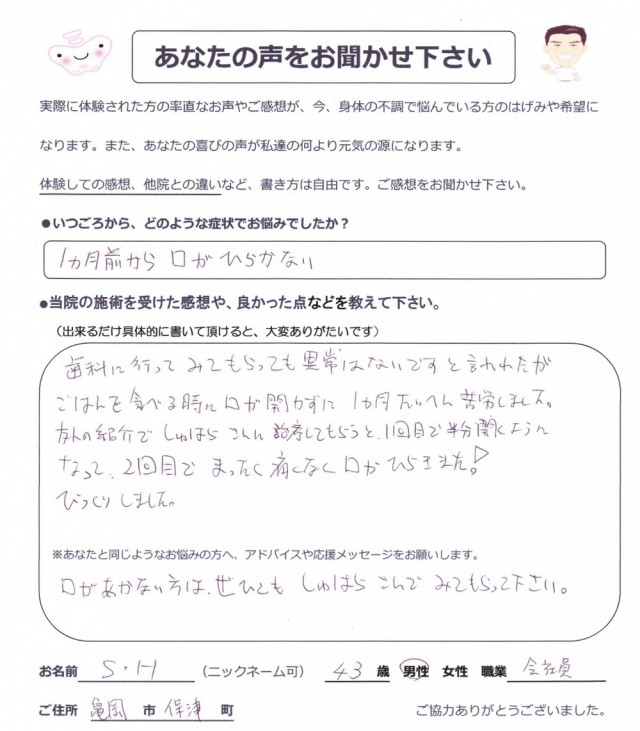 あなたの声をお聞かせ下さい
実際に体験された方の率直なお声やご感想が、今、身体の不調で悩んでいる方のはげみや希望に
なります。また、あなたの喜びの声が私達の何より元気の源になります。
体験しての感想、他院との違いなど、書き方は自由です。ご感想をお聞かせ下さい。
●いつごろから、どのような症状でお悩みでしたか？
1ヵ月前から 口が ひらかない
●当院の施術を受けた感想や、良かった点などを教えて下さい。
（出来るだけ具体的に書いて頂けると、大変ありがたいです）
歯科に行って みてもらっても 異常はないですと 言われたが
ごはんを 食べる時に 口が開かずに 1ヵ月たいへん 苦労しました。
友人の紹介で しゅはら さんに 診察してもらうと、1回目で半分開くように
なって、2回目で まったく痛くなく 口がひらきました!
びっくり しました。
※あなたと同じようなお悩みの方へ、アドバイスや応援メッセージをお願いします。
口があかない方は、ぜひとも しゅはら さんで みてもらって下さい。
お名前 S・H （ニックネーム可） 43 歳 男性 女性 職業 会社員
ご住所 亀岡 市 保津 町 ご協力ありがとうございました。